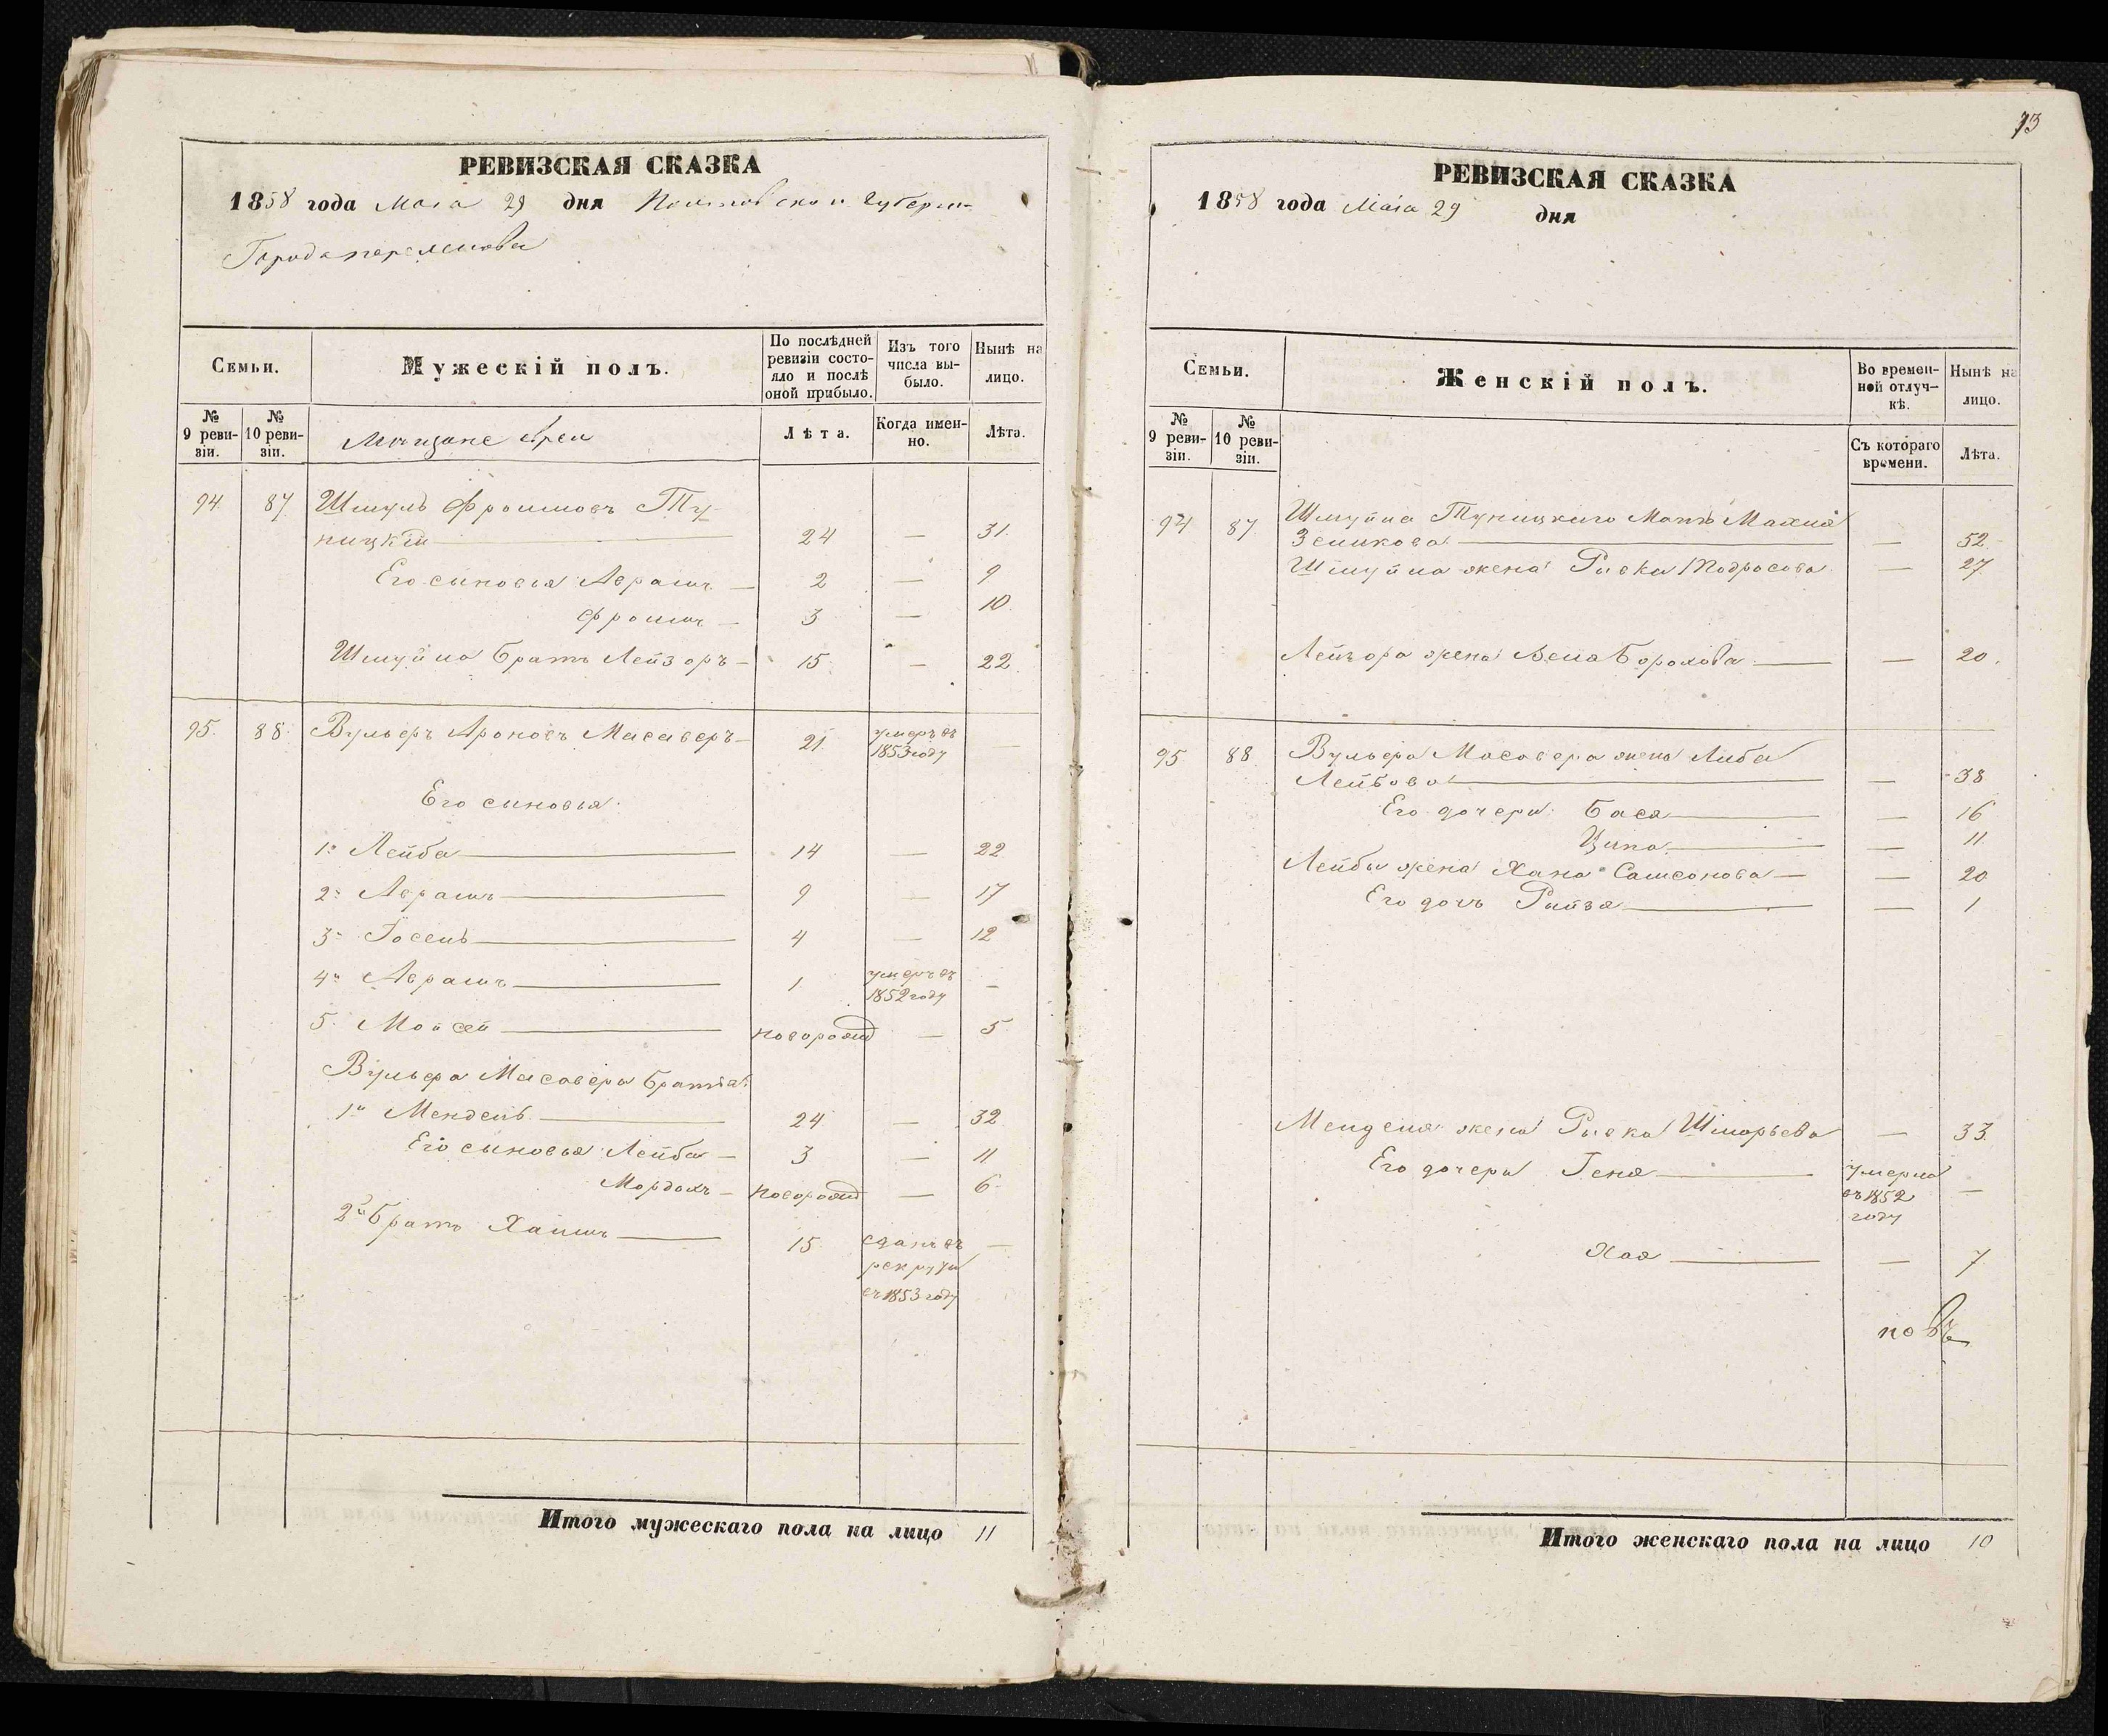 РЕВИЗСКАЯ СКАЗКА
1858 года Маiя 29 дня губерни
Города
Семьи.
Мужескій полъ.
По послѣдней ревизіи состояло и послѣ оной прибыло.
Изъ того числа выбыло.
Нынѣ на лицо.
№ 9 ревизіи.
№ 10 ревизіи.
Мѣщане евреи
Лѣта.
Когда именно.
Лѣта.
94. 87 Шмуль Фроимовъ Ту-
ницкій 24 — 31.
Его сыновья Аврамъ — 2 — 9
Фроимъ — 3 — 10.
Шмуйла братъ Лейзоръ — 15 — 22.
95. 88. Вульфъ Ароновъ Масаверъ — 21 умеръ въ —
1853 году
Его сыновья.
1й Лейба 14 — 22
2й Аврамъ 9 — 17
3й Іосель 4 — 12
4й Аврамъ 1 умеръ въ —
1852 году
5. Мойсей новорожд — 5
Вульфа Масавера братья.
1й Мендель 24 — 32
Его сыновья Лейба — 3 — 11
Мордохъ — новорожд — 6
2й братъ Хаимъ 15 сданъ въ —
рекруты
въ 1853 году
Итого мужескаго пола на лицо 11
73
РЕВИЗСКАЯ СКАЗКА
1858 года Маiя 29 дня
Семьи.
Женскій полъ.
Во временной отлучкѣ.
Нынѣ на лицо.
№ 9 ревизіи.
№ 10 ревизіи.
Съ котораго времени.
Лѣта.
94 87 Шмуйла Туницкаго Мать Махля
Зеликова — 52.
Шмуйла жена Рывка — 27
Лейзора жена Бейла Борохова — — 20.
95 88 Вульфа Масавера жена Либа
Лейбова — 38
Его дочери Бася — 16
Ципа — 11
Лейбы жена Хана Самсонова — — 20
Его дочь Рейзя — 1
Менделя жена Рывка Шморьева — 33.
Его дочери Геня умерла —
въ 1852
году
Хая — 7
Итого женскаго пола на лицо 10